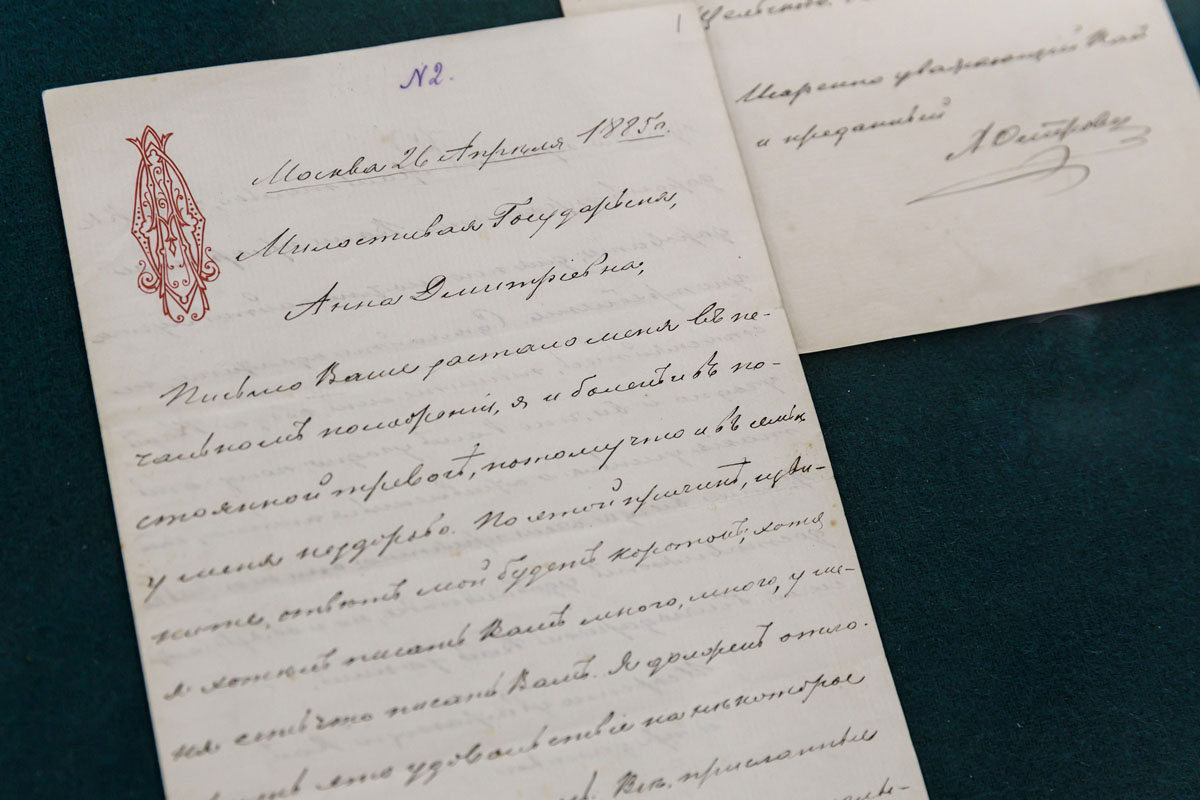 N2.
1
Москва 26 Апрѣля 1885 г.
Милостивая Государыня,
Анна Дмитріевна,
Письмо Ваше застало меня въ пе-
чальномъ положеніи, я и боленъ и въ по-
стоянной тревогѣ, потому что и въ семьѣ
у меня нездорово. По этой причинѣ, изви-
ните, отвѣтъ мой будетъ коротокъ, хотя
я хотѣлъ писать Вамъ много, много, у ме-
ня есть что писать Вамъ. Я долженъ отло-
жить это удовольствіе на нѣкоторое
Вск. присланныя
Искренно уважающій Васъ
и преданный
А Островск